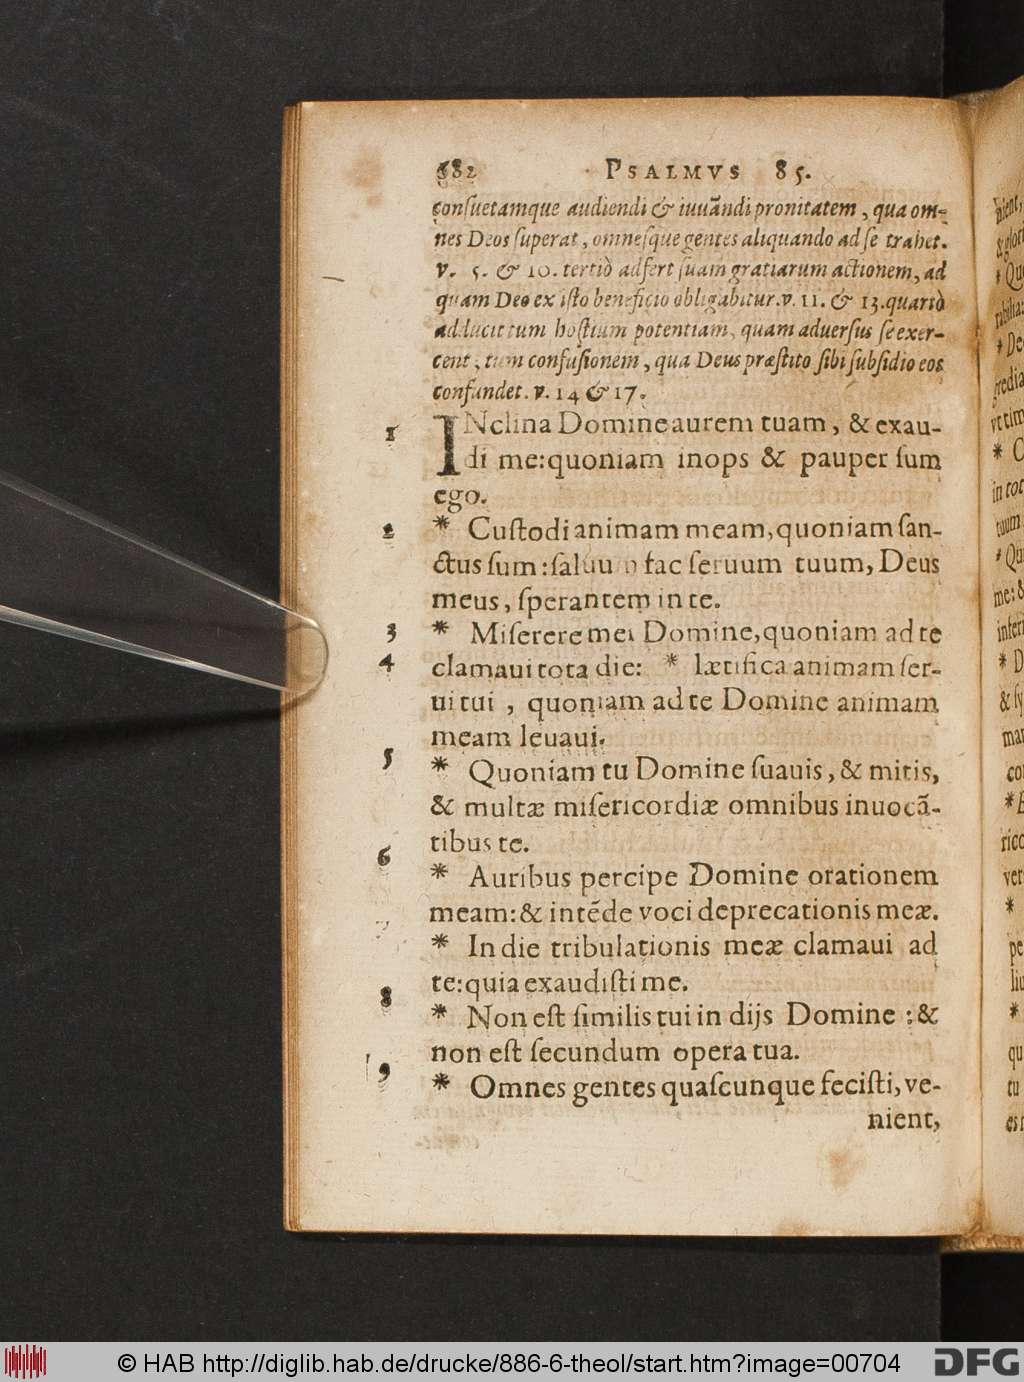 682 PSALMVS 85.
conſuetamque audiendi & iuuãndi pronitatem, qua om-
nes Deos ſuperat, omneſque gentes aliquando ad ſe trahet.
v. 5. & 10. tertiò adfert ſuam gratiarum actionem, ad
quam Deo ex iſto beneficio obligabitur. v. 11. & 13. quartò
adducit tum hoſtium potentiam, quam aduerſus ſe exer-
cent, tum confuſionem, qua Deus præſtito ſibi ſubſidio eos
confundet. v. 14 & 17.
1 INclina Domine aurem tuam, & exau-
di me: quoniam inops & pauper ſum
ego.
2 * Cuſtodi animam meam, quoniam ſan-
ctus ſum: ſaluum fac ſeruum tuum, Deus
meus, ſperantem in te.
3 * Miſerere mei Domine, quoniam ad te
4 clamaui tota die: * lætifica animam ſer-
ui tui, quoniam ad te Domine animam
meam leuaui.
5 * Quoniam tu Domine ſuauis, & mitis,
& multæ miſericordiæ omnibus inuocã-
tibus te.
6 * Auribus percipe Domine orationem
meam: & intẽde voci deprecationis meæ.
* In die tribulationis meæ clamaui ad
te: quia exaudiſti me.
8 * Non eſt ſimilis tui in dijs Domine: &
non eſt ſecundum opera tua.
9 * Omnes gentes quaſcunque feciſti, ve-
nient,
© HAB http://diglib.hab.de/drucke/886-6-theol/start.htm?image=00704
DFG